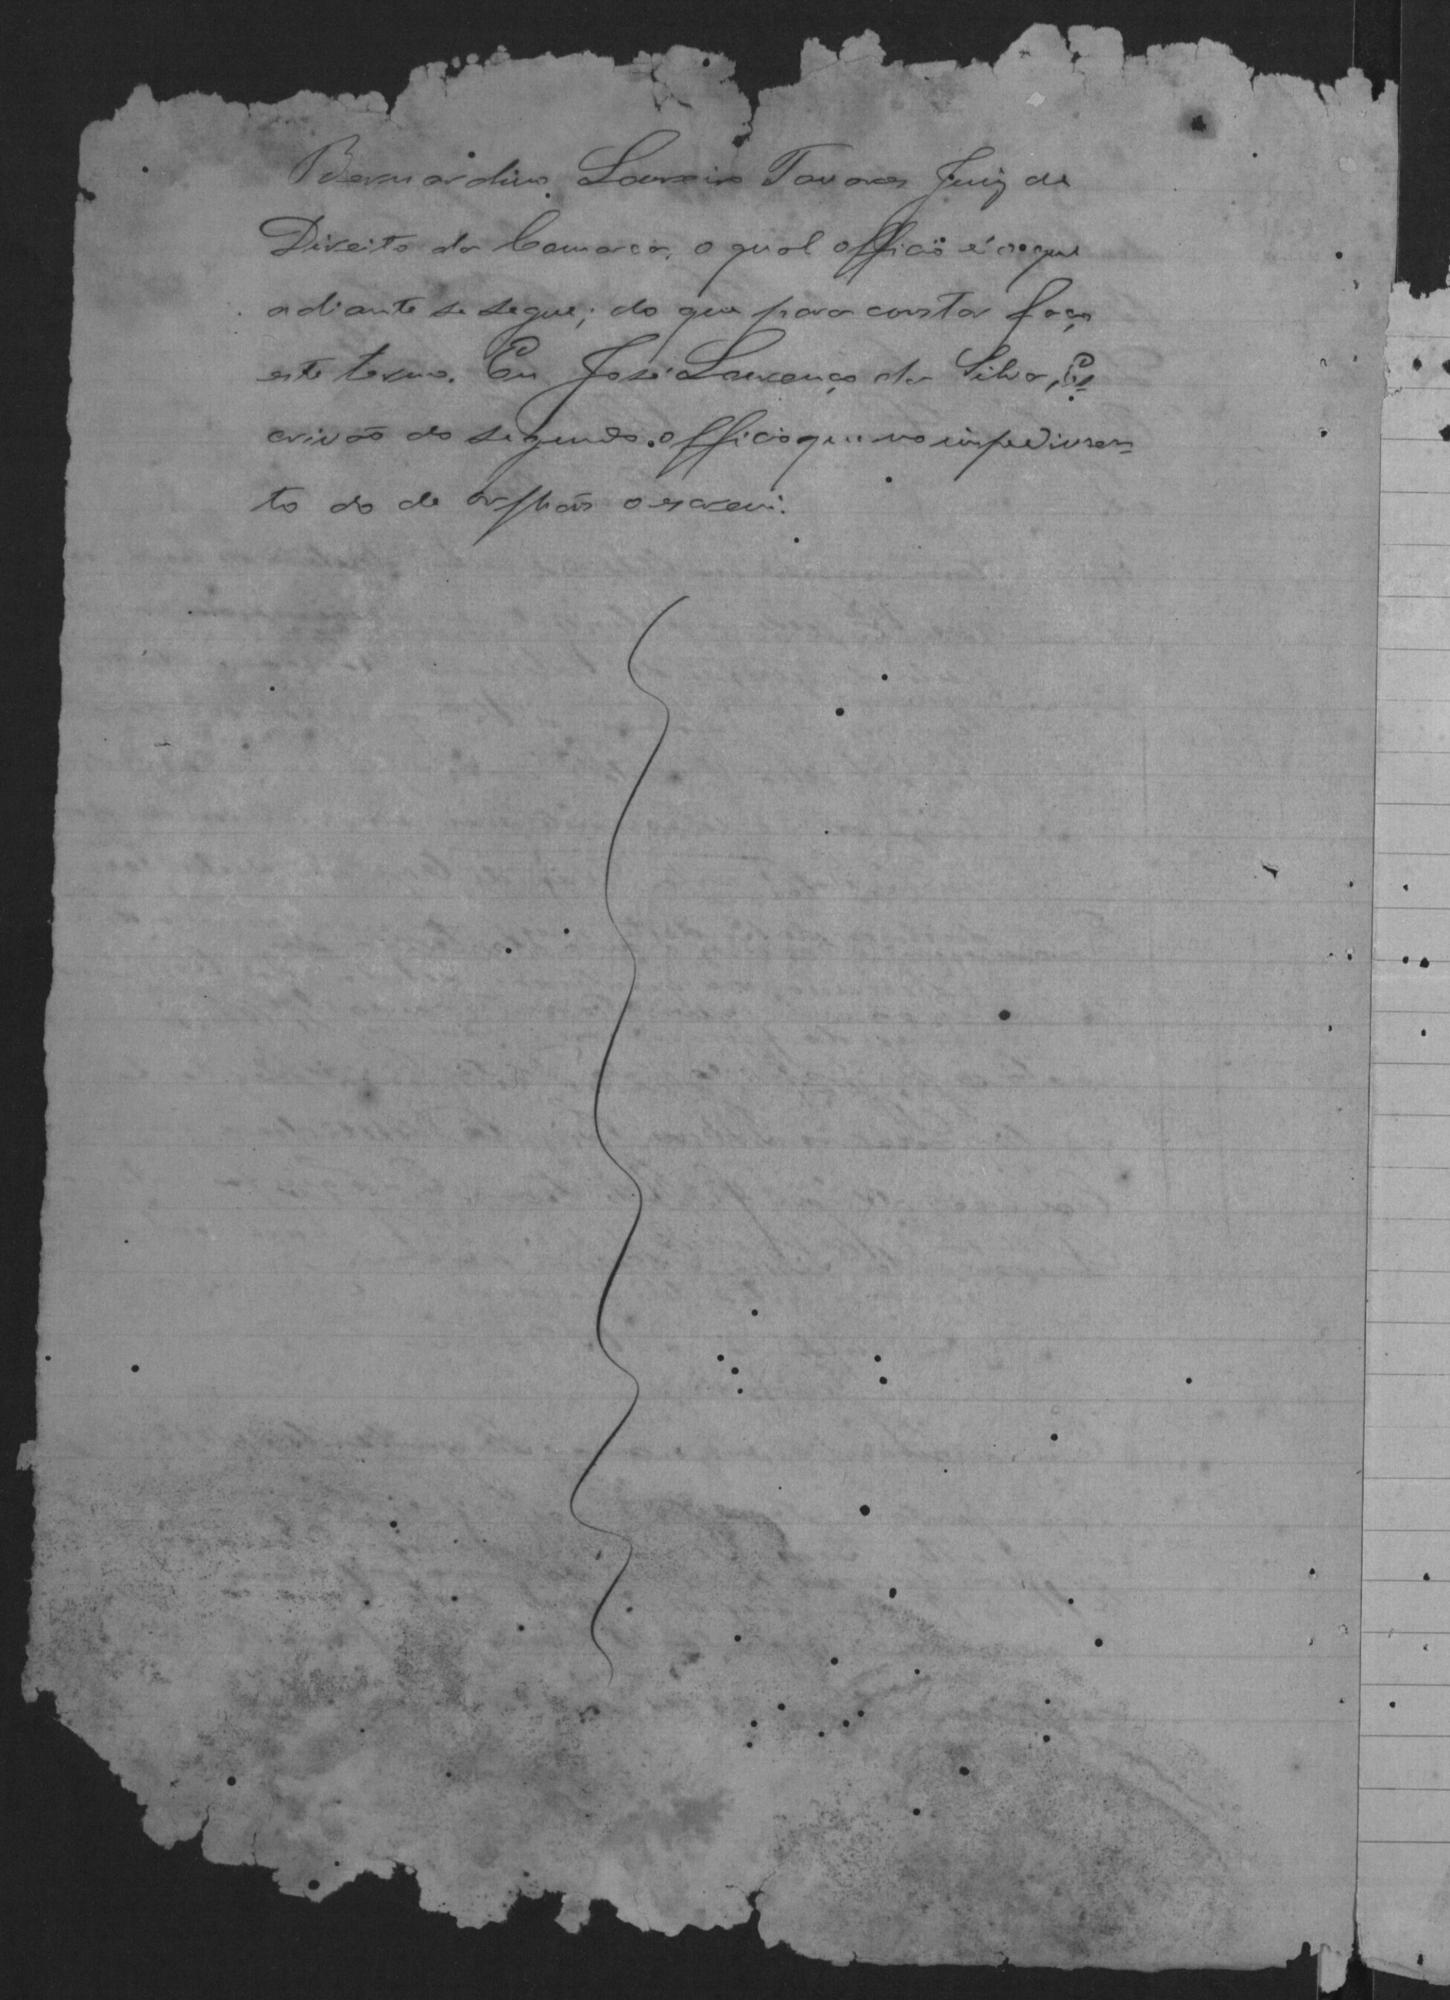 Bernardino Loureiro Tavares Juiz de
Direito da Comarca, o qual officio é o que
adiante se segue; do que para constar faço
este termo. Eu José Lourenço da Silva, Es-
crivão do segundo officio que no impedimen-
to do de orphãos o escrevi.